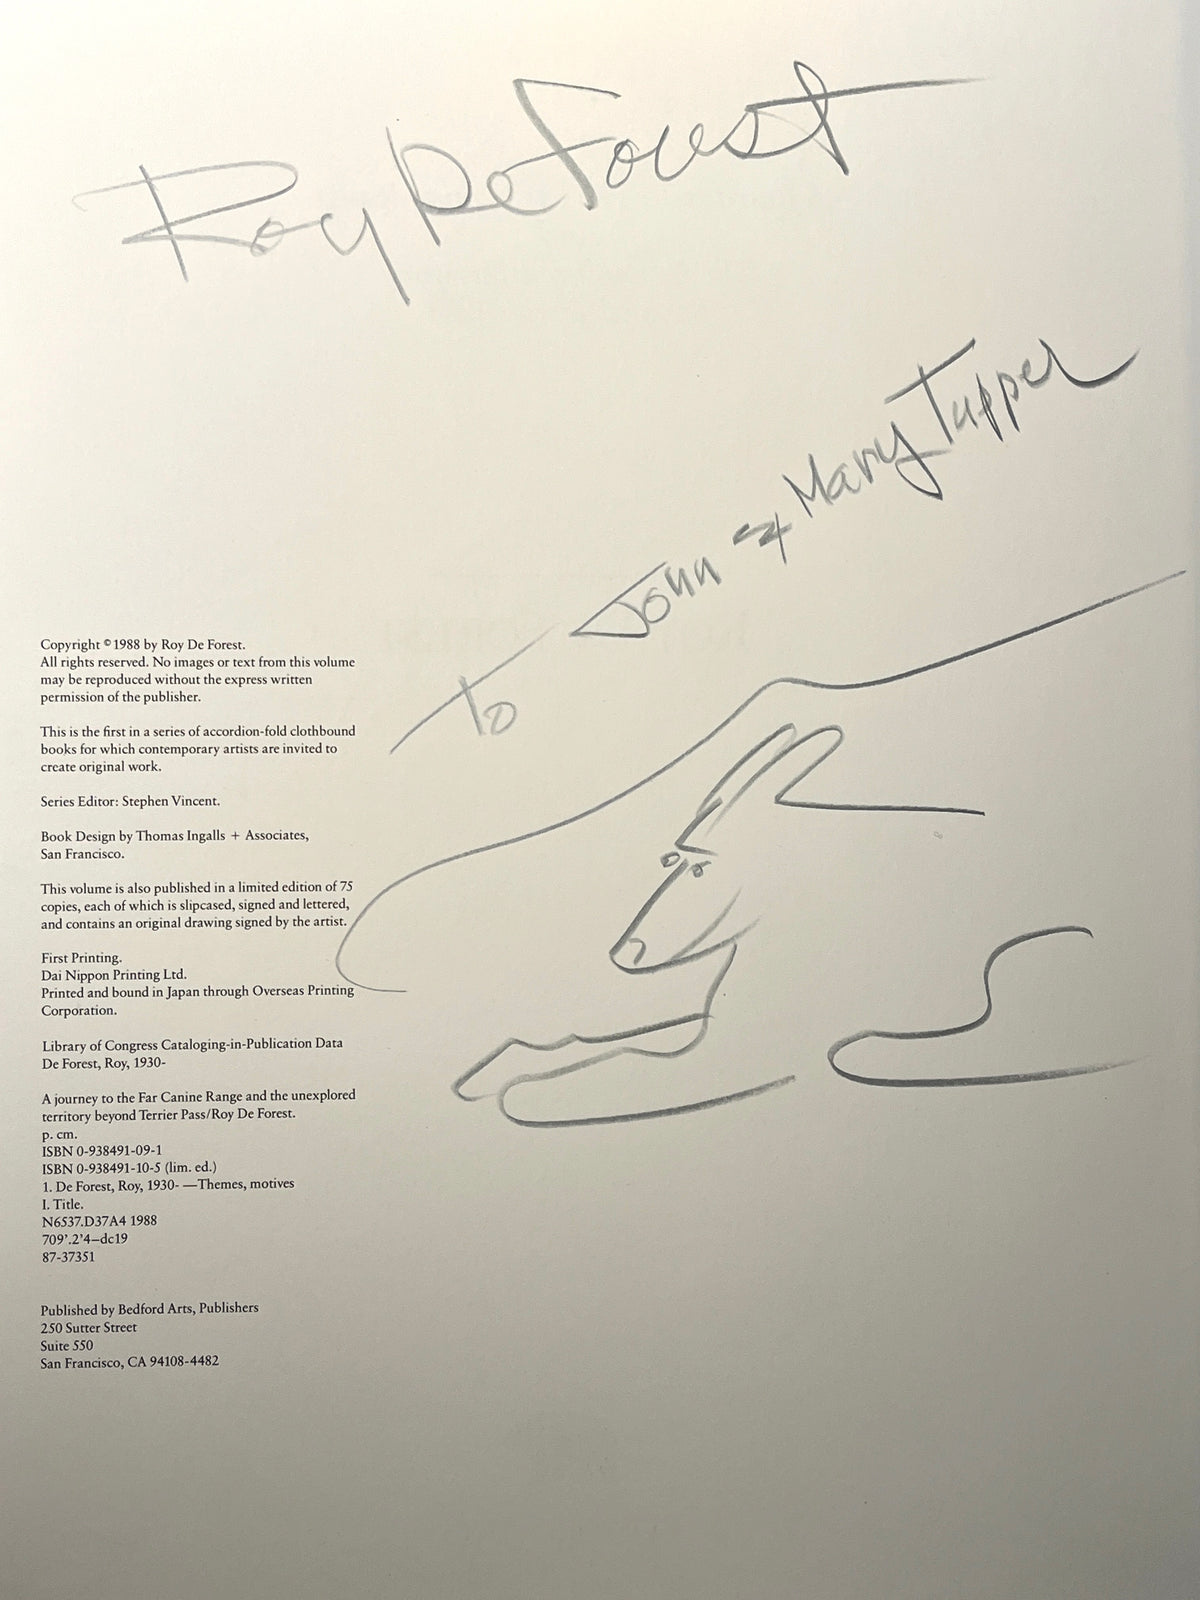 Roy De Forest
To John & Mary Tupper
Copyright ©1988 by Roy De Forest.
All rights reserved. No images or text from this volume
may be reproduced without the express written
permission of the publisher.
This is the first in a series of accordion-fold clothbound
books for which contemporary artists are invited to
create original work.
Series Editor: Stephen Vincent.
Book Design by Thomas Ingalls + Associates,
San Francisco.
This volume is also published in a limited edition of 75
copies, each of which is slipcased, signed and lettered,
and contains an original drawing signed by the artist.
First Printing.
Dai Nippon Printing Ltd.
Printed and bound in Japan through Overseas Printing
Corporation.
Library of Congress Cataloging-in-Publication Data
De Forest, Roy, 1930-
A journey to the Far Canine Range and the unexplored
territory beyond Terrier Pass/Roy De Forest.
p. cm.
ISBN 0-938491-09-1
ISBN 0-938491-10-5 (lim. ed.)
1. De Forest, Roy, 1930- —Themes, motives
I. Title.
N6537.D37A4 1988
709'.2'4—dc19
87-37351
Published by Bedford Arts, Publishers
250 Sutter Street
Suite 550
San Francisco, CA 94108-4482